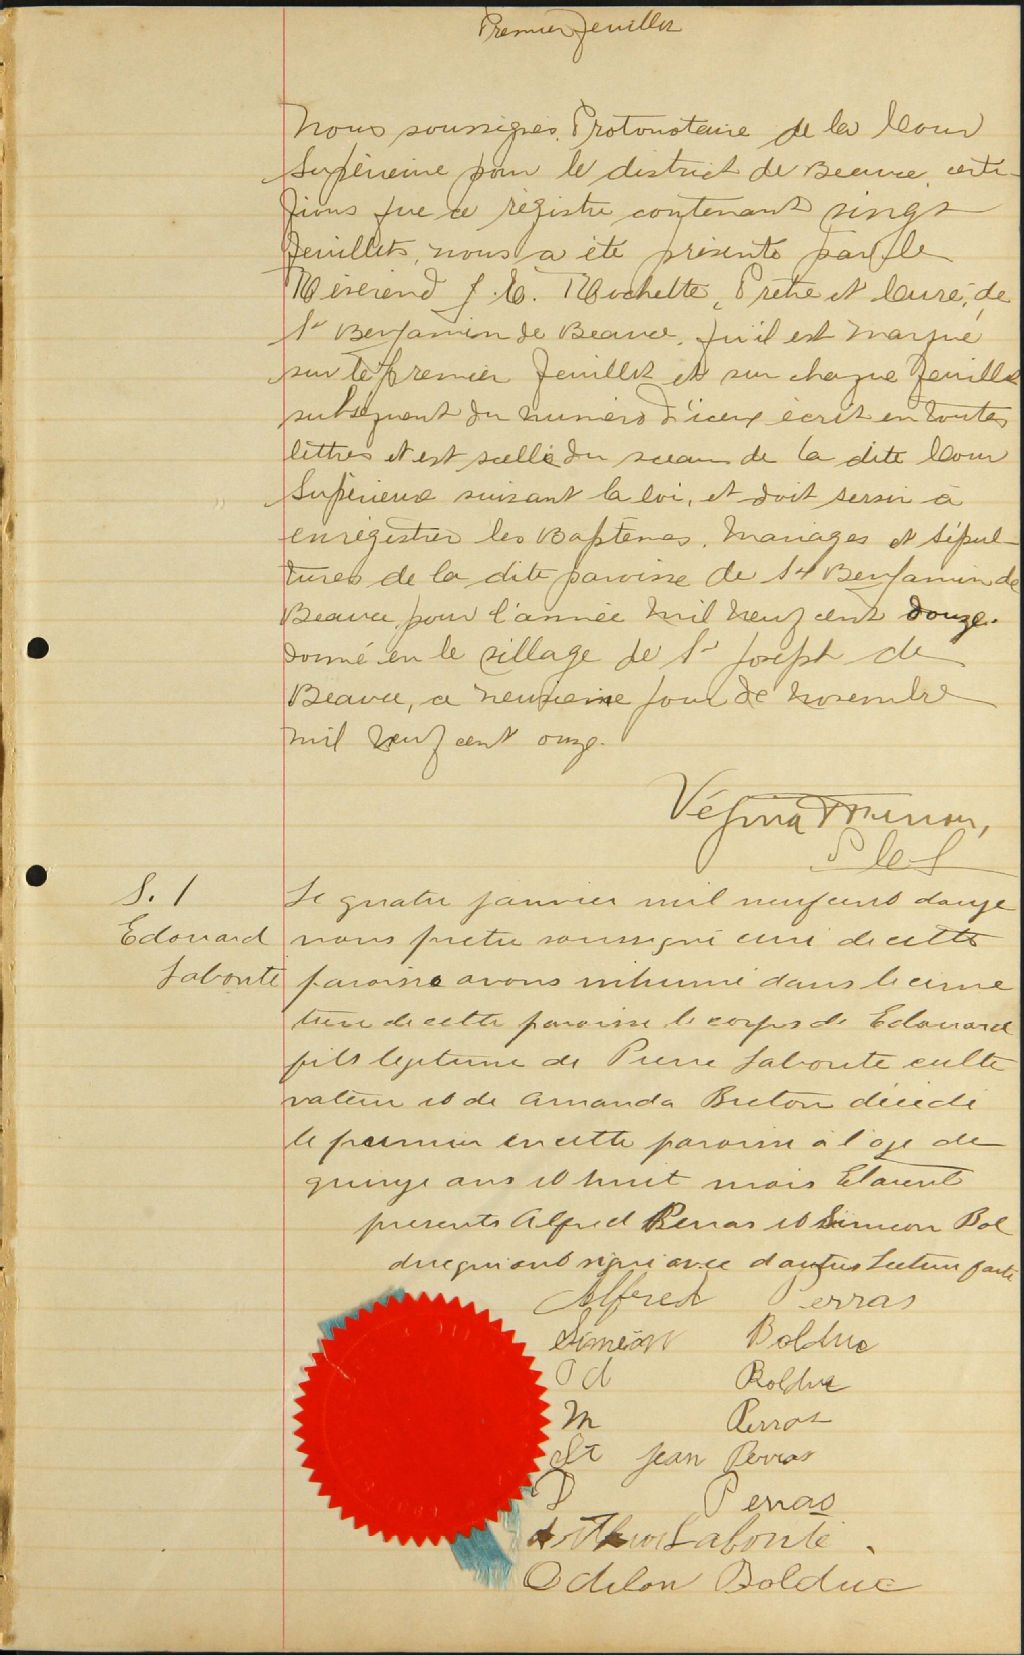 Premier feuillet
Nous soussignés, Protonotaire de la Cour
Supérieure pour le district de Beauce, certi-
fions que ce régistre contenant vingt
feuillets, nous a été présenté par le
Révérend J. E. Rochette, Prêtre et Curé, de
St Benjamin de Beauce, qu'il est marqué
sur le premier feuillet et sur chaque feuillet
subséquent du numéro d'iceux écrit en toutes
lettres et est scellé du sceau de la dite Cour
Supérieure suivant la loi, et doit servir à
enrégistrer les Baptêmes, Mariages et Sépul-
tures de la dite paroisse de St Benjamin de
Beauce pour l'année mil neuf cent douze.
Donné en le village de St Joseph de
Beauce, ce neuvieme jour de Novembre
mil neuf cent onze.
Vézina
P C S
S. 1
Edouard
Labonté
Le quatre janvier mil neuf cent douze
nous pretre soussigné curé de cette
paroisse avons inhumé dans le cime
tiere de cette paroisse le corps de Edouard
fils legitime de Pierre Labonte culti
vateur et de Amanda Breton décédé
le premier en cette paroisse à l'age de
quinze ans et huit mois Etaient
presents Alfred Perras et Simeon Bol
duc qui ont signé avec d'autres Lecture faite
Alfred Perras
Siméon Bolduc
Od Bolduc
M Perras
St Jean Perras
D Perras
Arthur Labonté
Odilon Bolduc